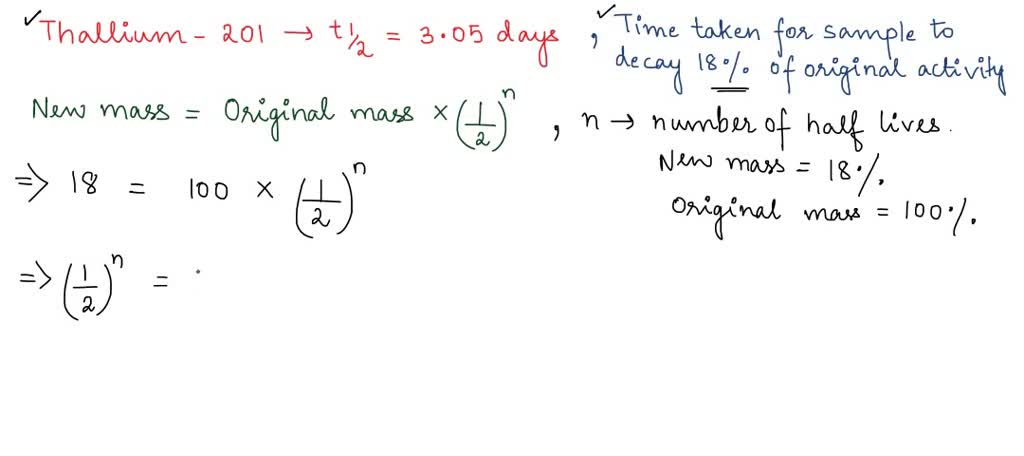 ✓Thallium - 201 → t1/2 = 3.05 days , ✓Time taken for sample to
decay 18% of original activity
New mass = Original mass × (1/2)^n , n → number of half lives.
New mass = 18%.
Original mass = 100%.
=> 18 = 100 × (1/2)^n
=> (1/2)^n =